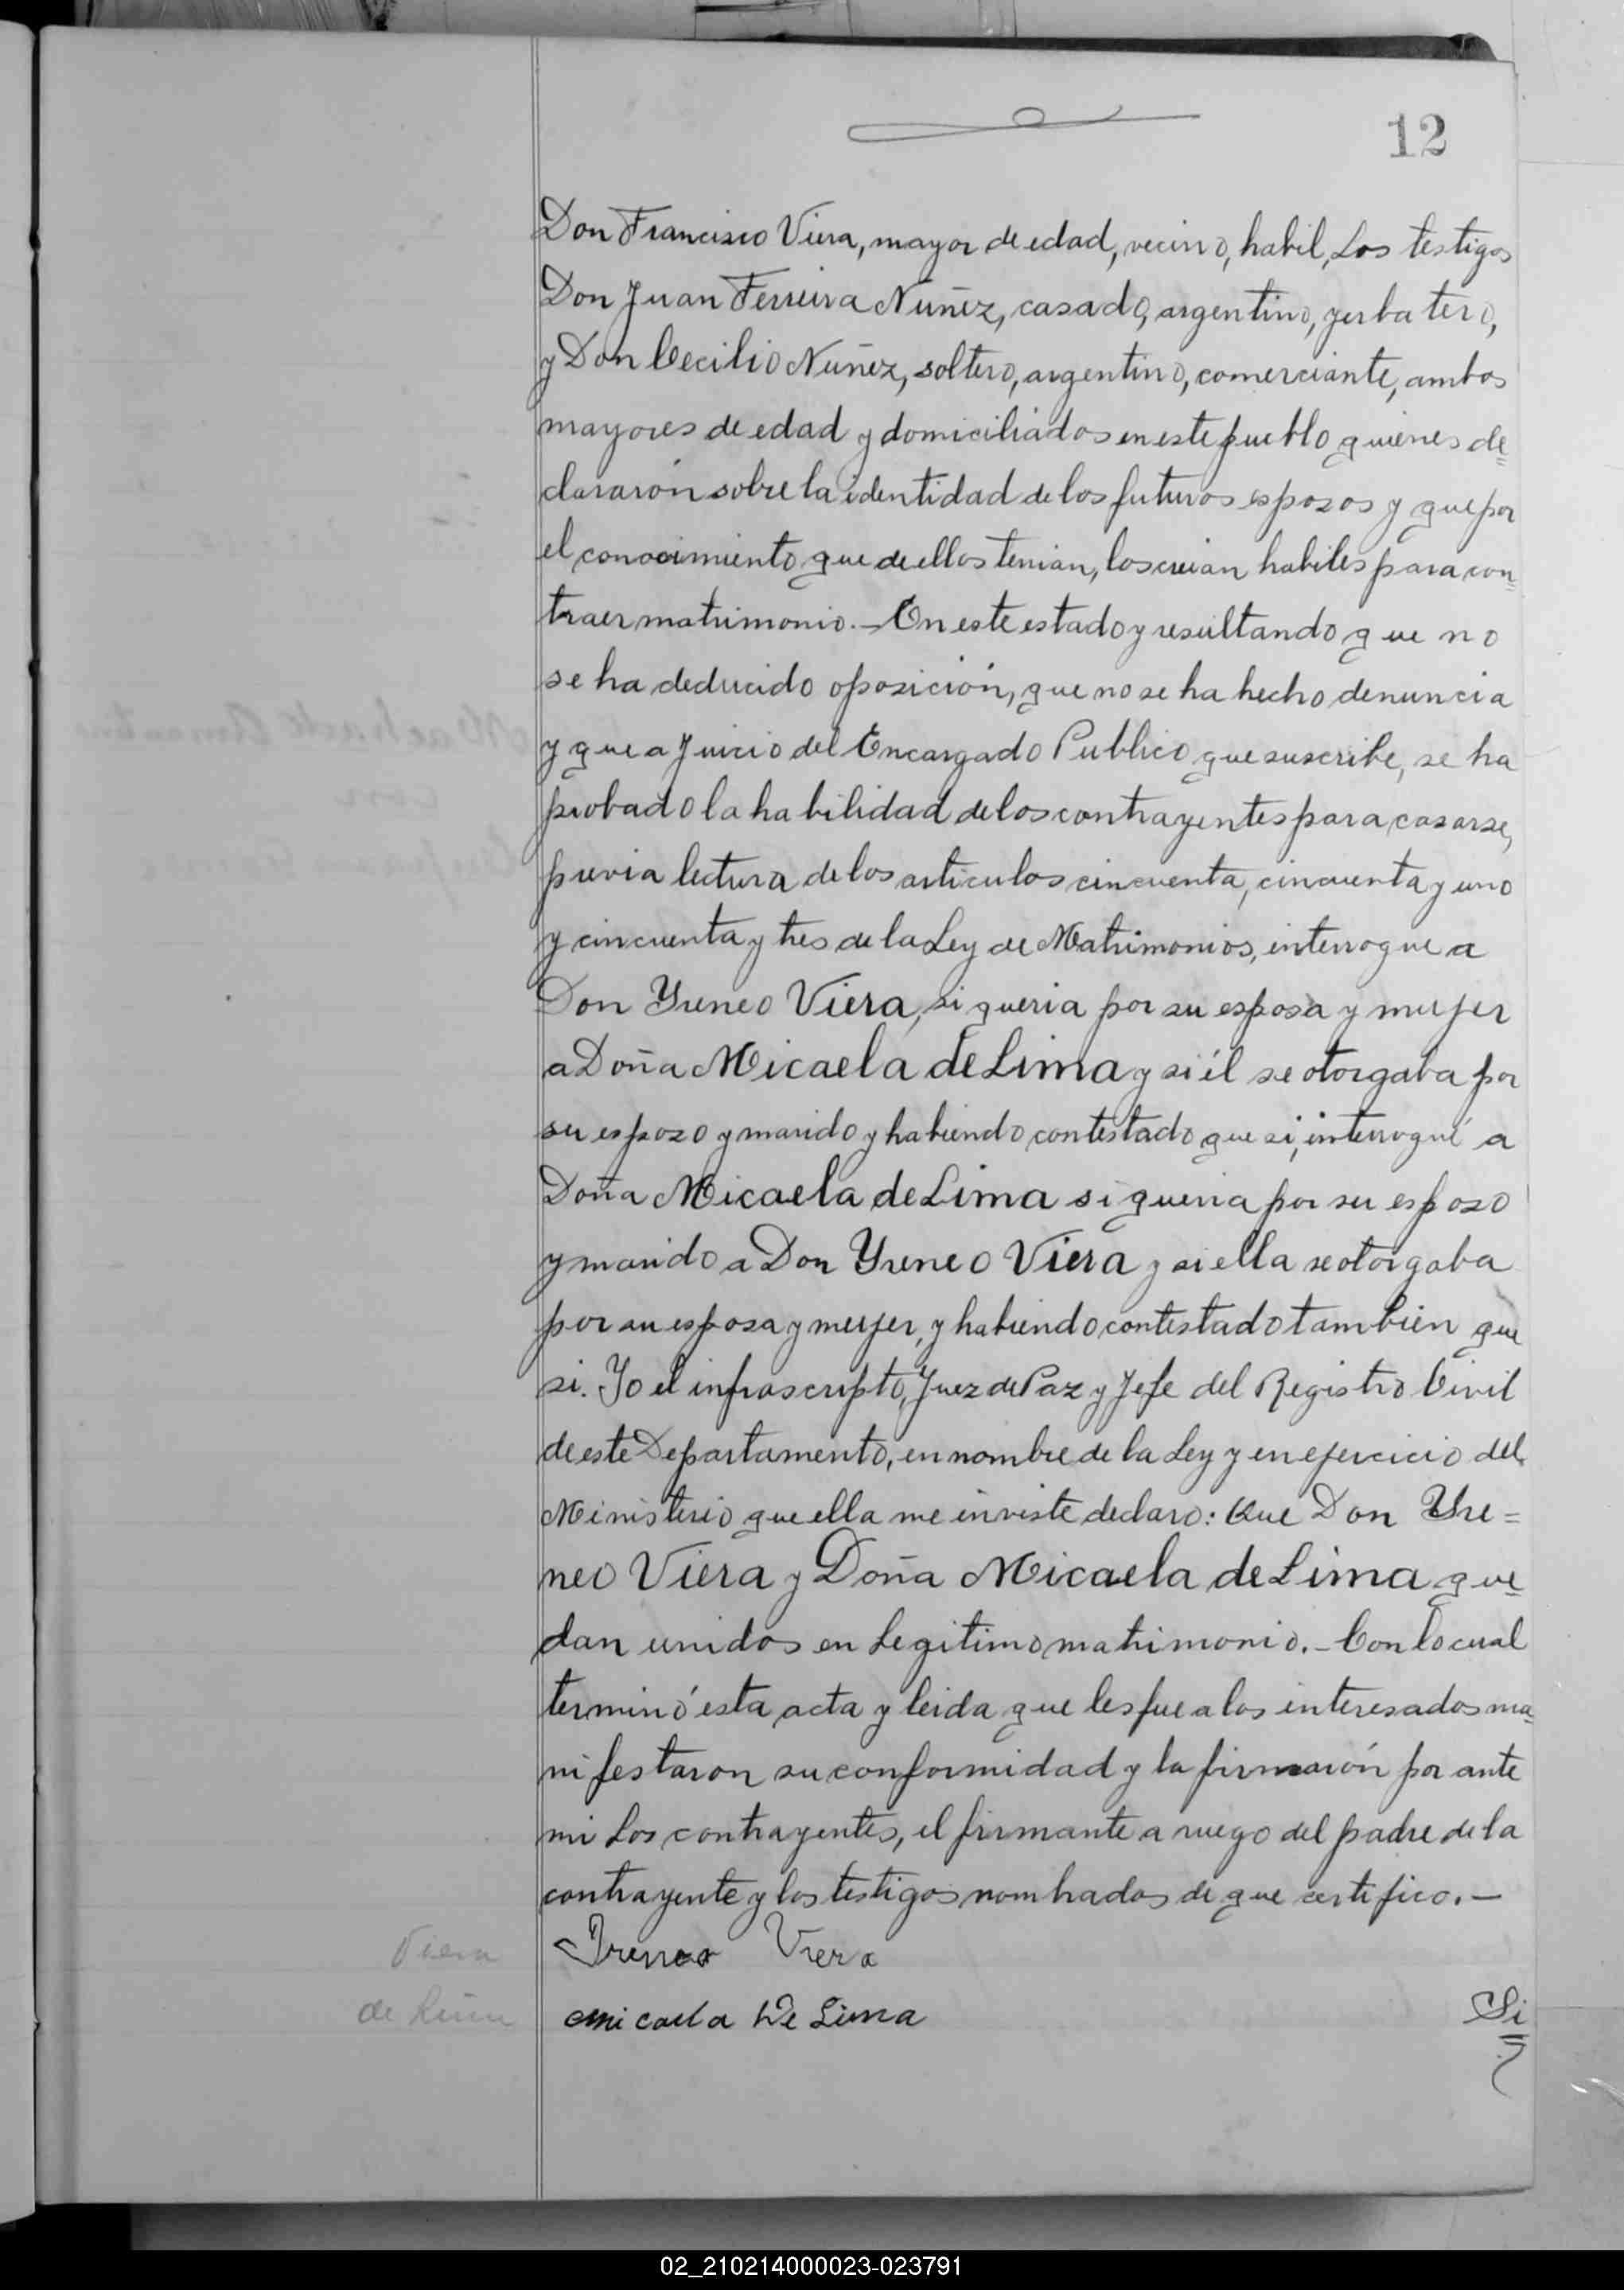 12
Don Francisco Viera, mayor de edad, vecino, habil, Los testigos
Don Juan Ferreira Nuñez, casado, argentino, yerbatero,
y Don Cecilio Nuñez, soltero, argentino, comerciante, ambos
mayores de edad y domiciliados en este pueblo quienes de=
clararón sobre la identidad de los futuros esposos y que por
el conocimiento que de ellos tenian, los creian habiles para con=
traer matrimonio.- En este estado y resultando que no
se ha deducido oposición, que no se ha hecho denuncia
y que a juicio del Encargado Publico que suscribe, se ha
probado la habilidad de los contrayentes para casarse,
previa lectura de los articulos cincuenta, cincuenta y uno
y cincuenta y tres de la Ley de Matrimonios, interrogue a
Don Yreneo Viera, si queria por su esposa y mujer
a Doña Micaela de Lima y si él se otorgaba por
su espozo y marido y habiendo contestado que si, interrogué a
Doña Micaela de Lima si queria por su espozo
y marido a Don Yreneo Viera y si ella se otorgaba
por su esposa y mujer, y habiendo contestado tambien que
si. Yo el infrascripto, Juez de Paz y Jefe del Registro Civil
de este Departamento, en nombre de la Ley y en ejercicio del
Ministerio que ella me inviste declaro: Que Don Yre=
neo Viera y Doña Micaela de Lima que=
dan unidos en Legitimo matrimonio.- Con lo cual
terminó esta acta y leida que les fue a los interesados ma=
nifestaron su conformidad y la firmarón por ante
mi Los contrayentes, el firmante a ruego del padre de la
contrayente y los testigos nombrados de que certifico.-
Viera
Ireneo Viera
de Lima
Micaela De Lima
Si
02_210214000023-023791